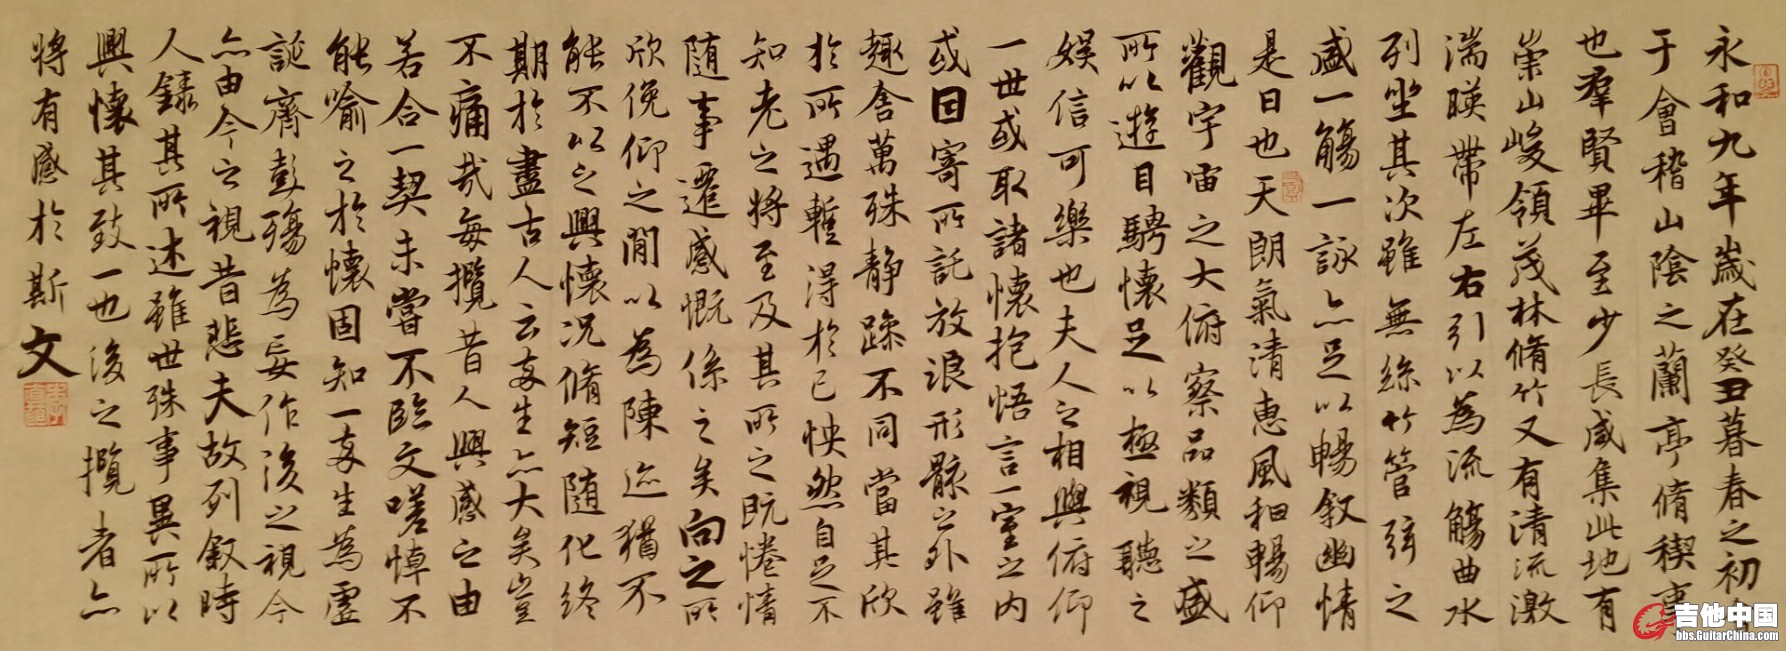 永和九年歲在癸丑暮春之初
于會稽山陰之蘭亭脩禊事
也羣賢畢至少長咸集此地有
崇山峻領茂林脩竹又有清流激
湍暎帶左右引以為流觴曲水
列坐其次雖無絲竹管弦之
盛一觴一詠亦足以暢叙幽情
是日也天朗氣清惠風和暢仰
觀宇宙之大俯察品類之盛
所以遊目騁懷足以極視聽之
娛信可樂也夫人之相與俯仰
一世或取諸懷抱悟言一室之内
或因寄所託放浪形骸之外雖
趣舍萬殊静躁不同當其欣
於所遇蹔得於己怏然自足不
知老之將至及其所之既惓情
随事遷感慨係之矣向之所
欣俛仰之閒以為陳迹猶不
能不以之興懷况脩短随化終
期於盡古人云死生亦大矣豈
不痛哉每攬昔人興感之由
若合一契未嘗不臨文嗟悼不
能喻之於懷固知一死生為虛
誕齊彭殤為妄作後之視今
亦由今之視昔悲夫故列叙時
人錄其所述雖世殊事異所以
興懷其致一也後之攬者亦
將有感於斯文
吉他中国
bbs.GuitarChina.com